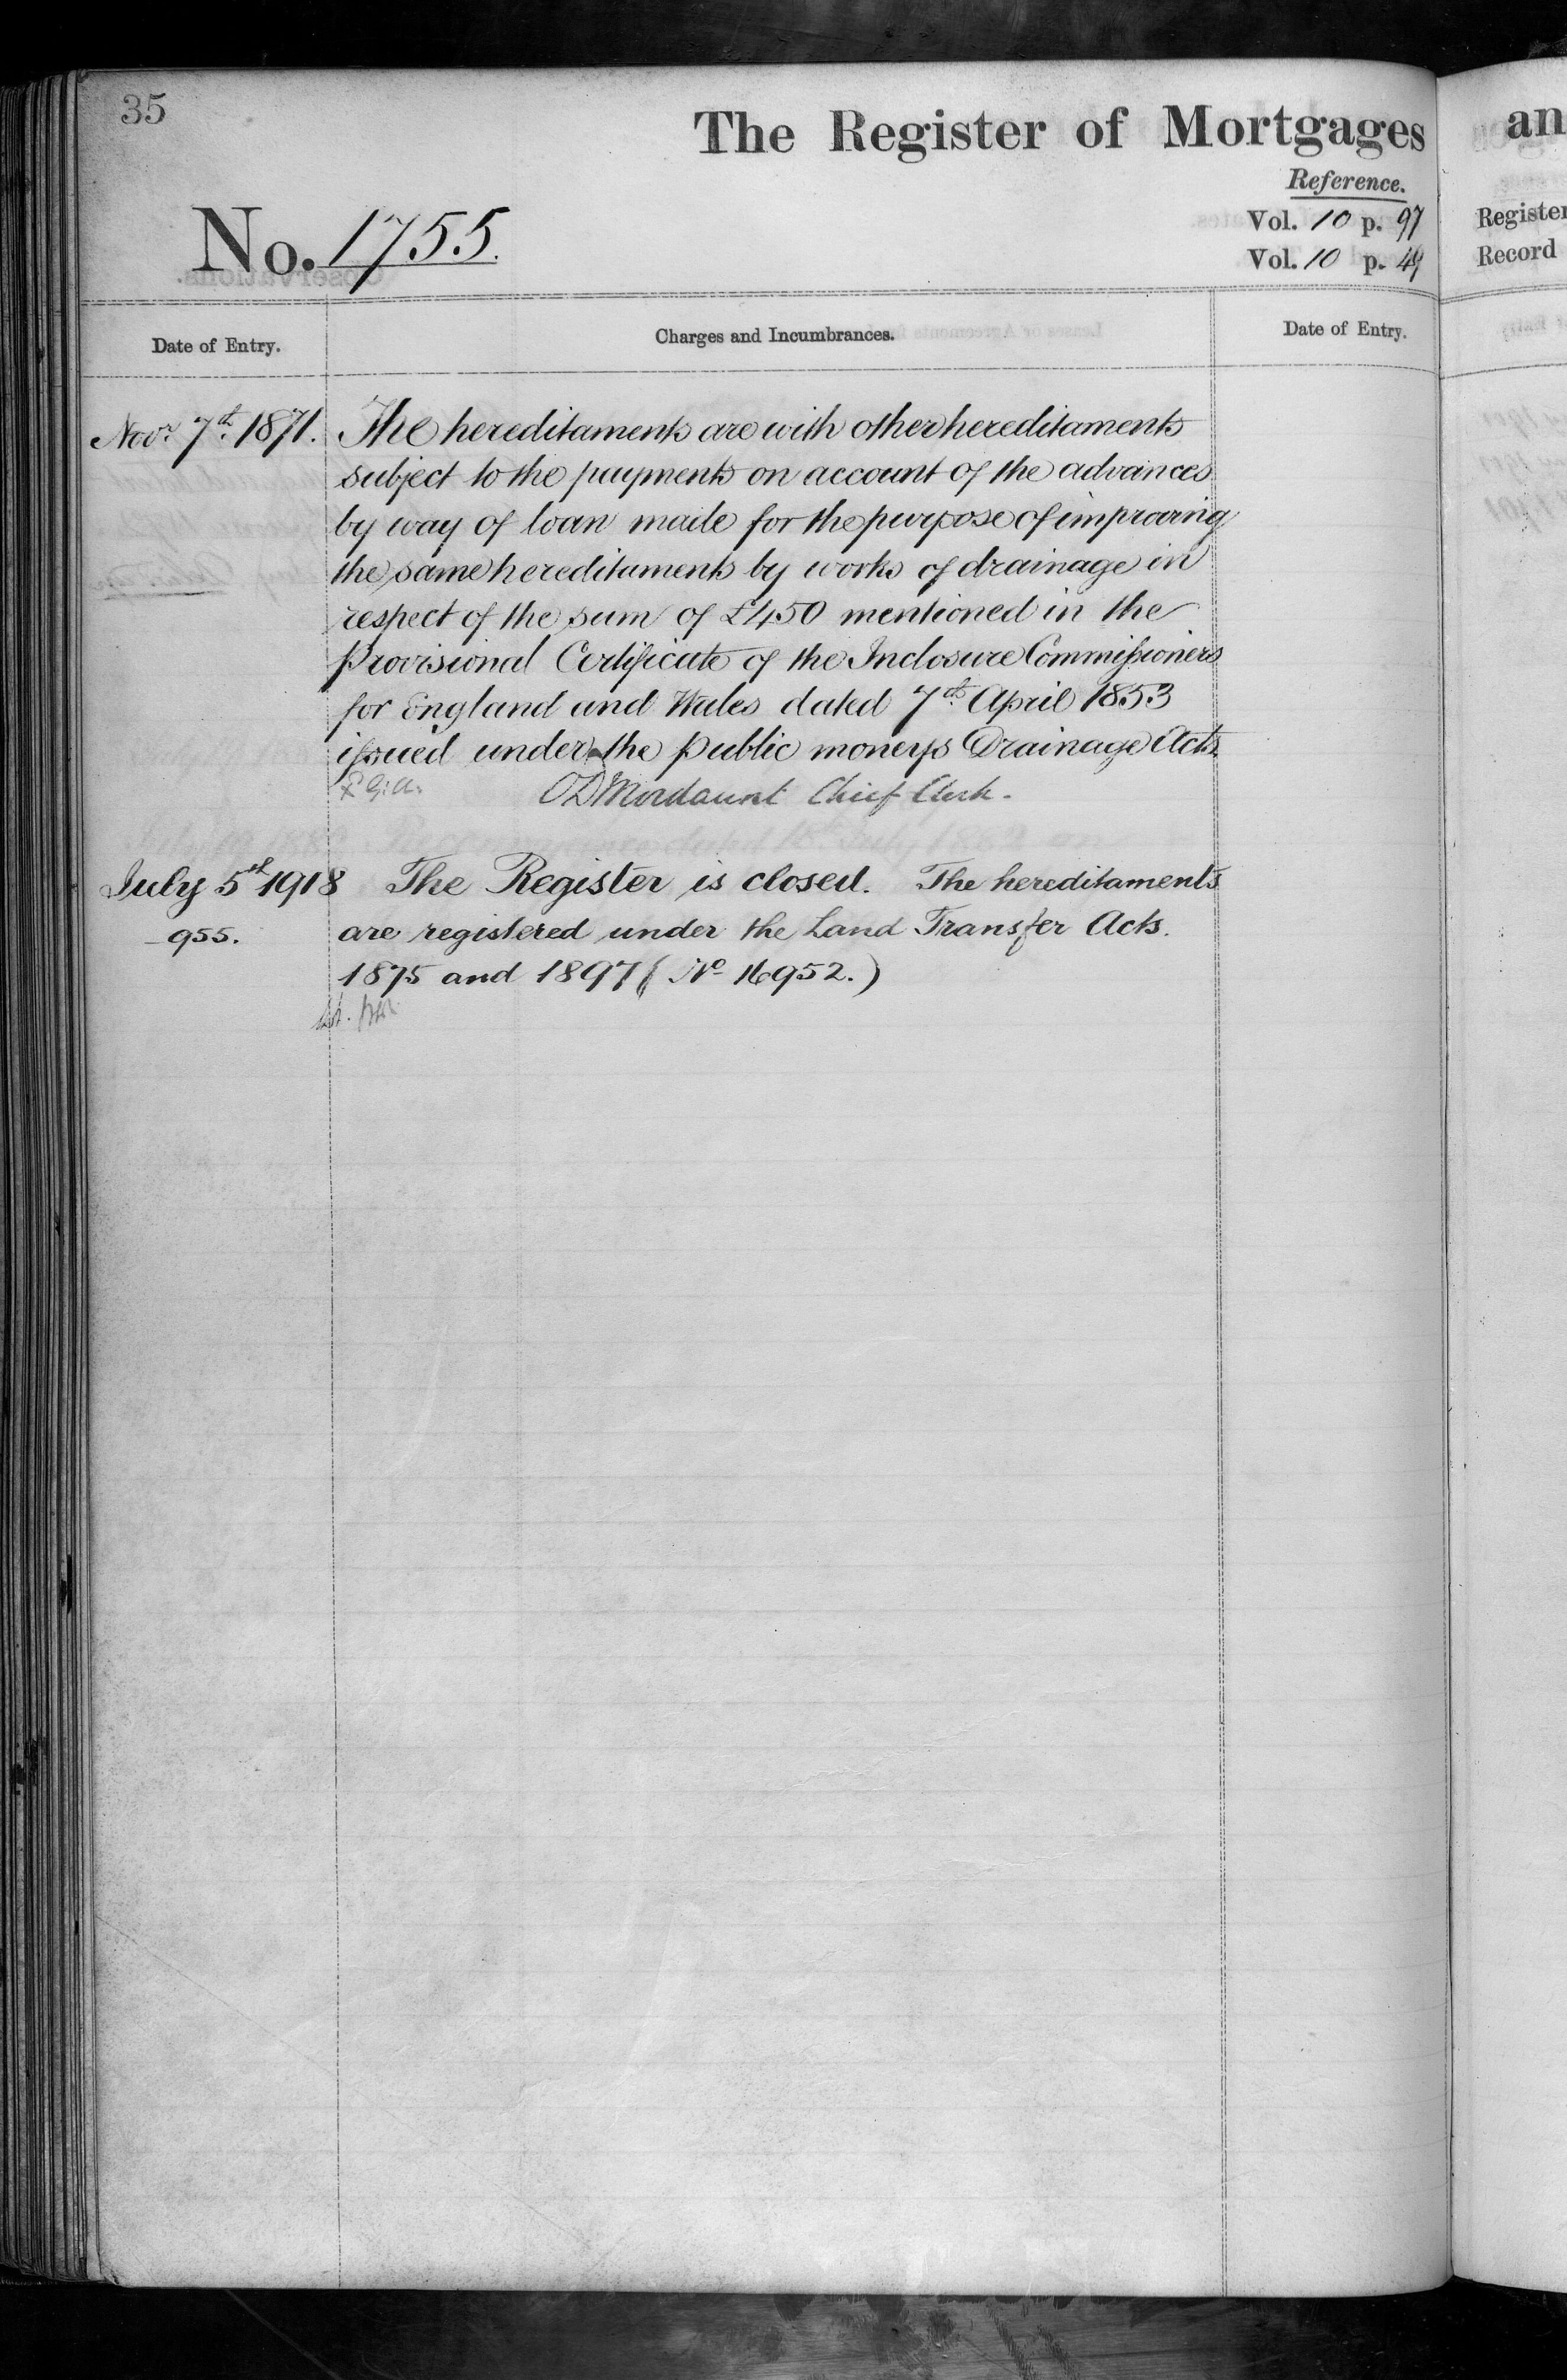 35
The Register of Mortgages
an
Reference.
No. 1755.
Vol. 10 p. 97
Register
Vol. 10 p. 49
Record
Date of Entry.
Charges and Incumbrances.
Date of Entry.
Novr. 7th. 1871. The hereditaments are with other hereditaments
subject to the payments on account of the advances
by way of loan made for the purpose of improving
the same hereditaments by works of drainage in
respect of the sum of £450 mentioned in the
Provisional Certificate of the Inclosure Commissioners
for England and Wales dated 7th April 1853
issued under the public moneys Drainage Acts
Mordaunt Chief Clerk.
July 5th 1918 The Register is closed. The hereditaments
955. are registered under the Land Transfer Acts.
1875 and 1897 (No 16952.)